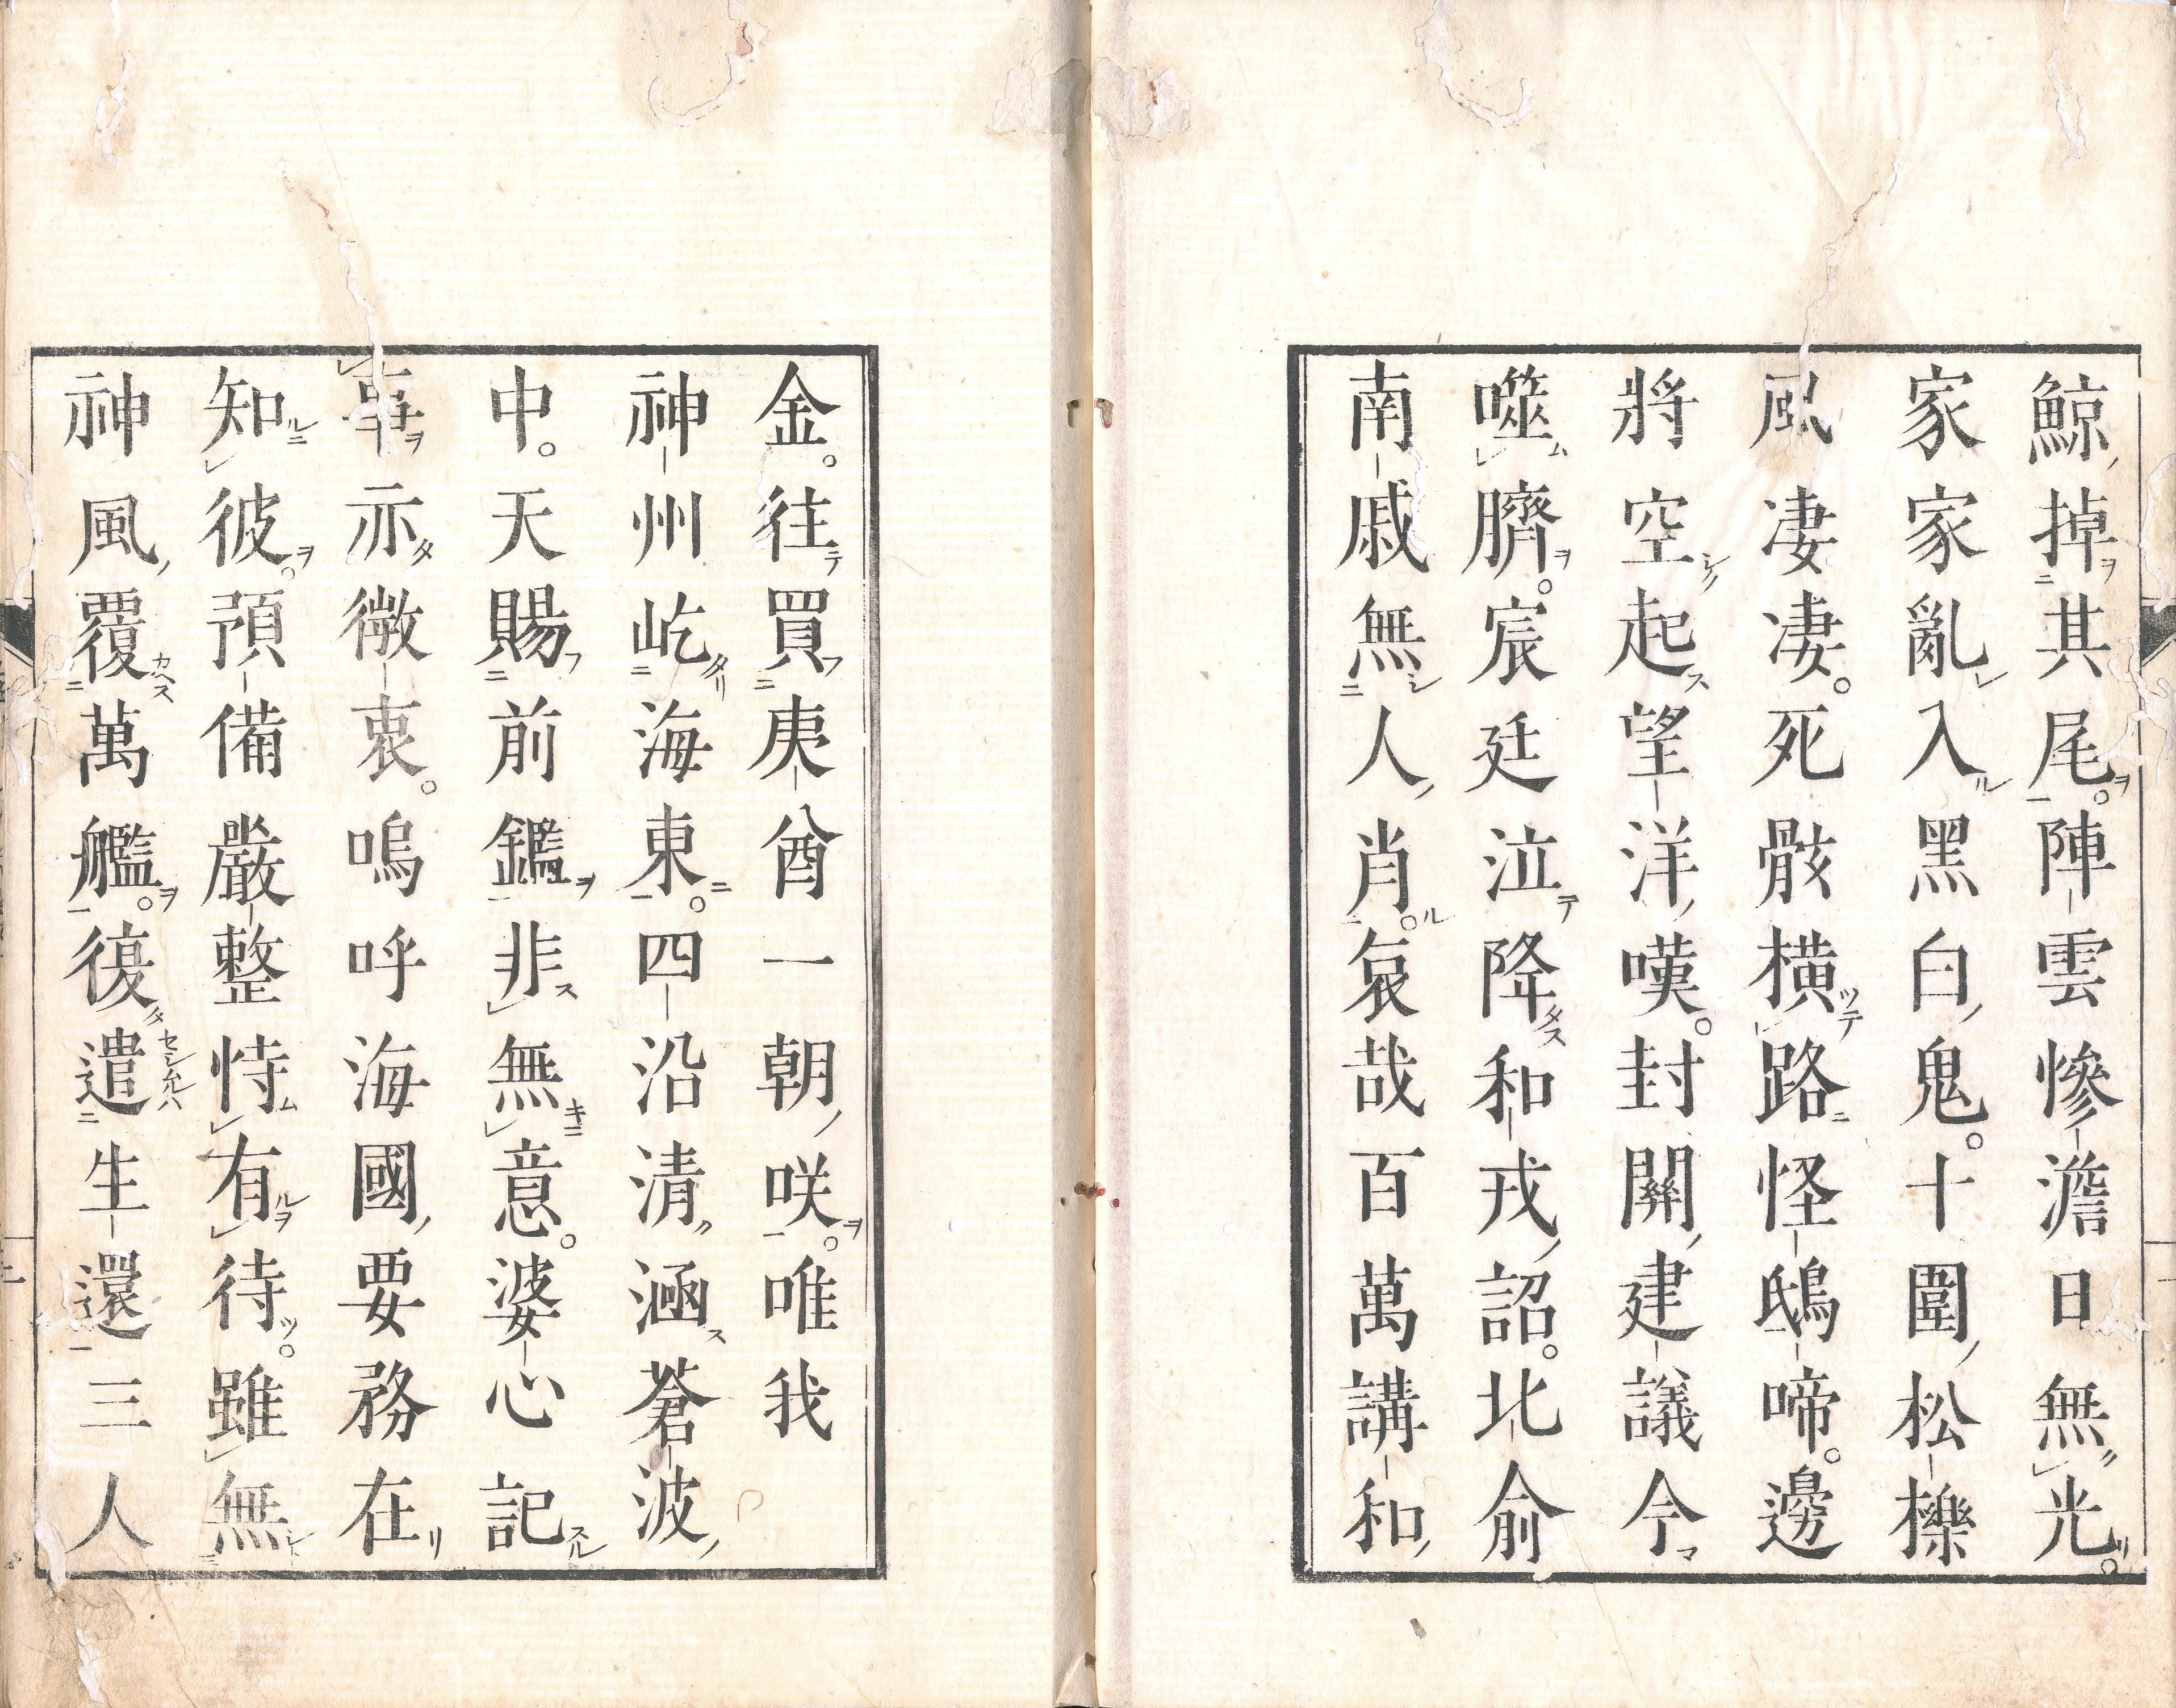 鯨掉其尾。陣雲慘澹日無光。
家家亂入黑白鬼。十圍松櫟
風凄凄。死骸橫路怪鴟啼。邊
將空起望洋嘆。封關建議今
噬臍。宸廷泣降和戎詔。北俞
南戚無人肖。哀哉百萬講和
金。往買夷酋一朝咲。唯我
神州屹海東。四沿清涵蒼波
中。天賜前鑑非無意。婆心記
事亦微衷。嗚呼海國要務在
知彼。預備嚴整恃有待。雖無
神風覆萬艦。復遣生還三人